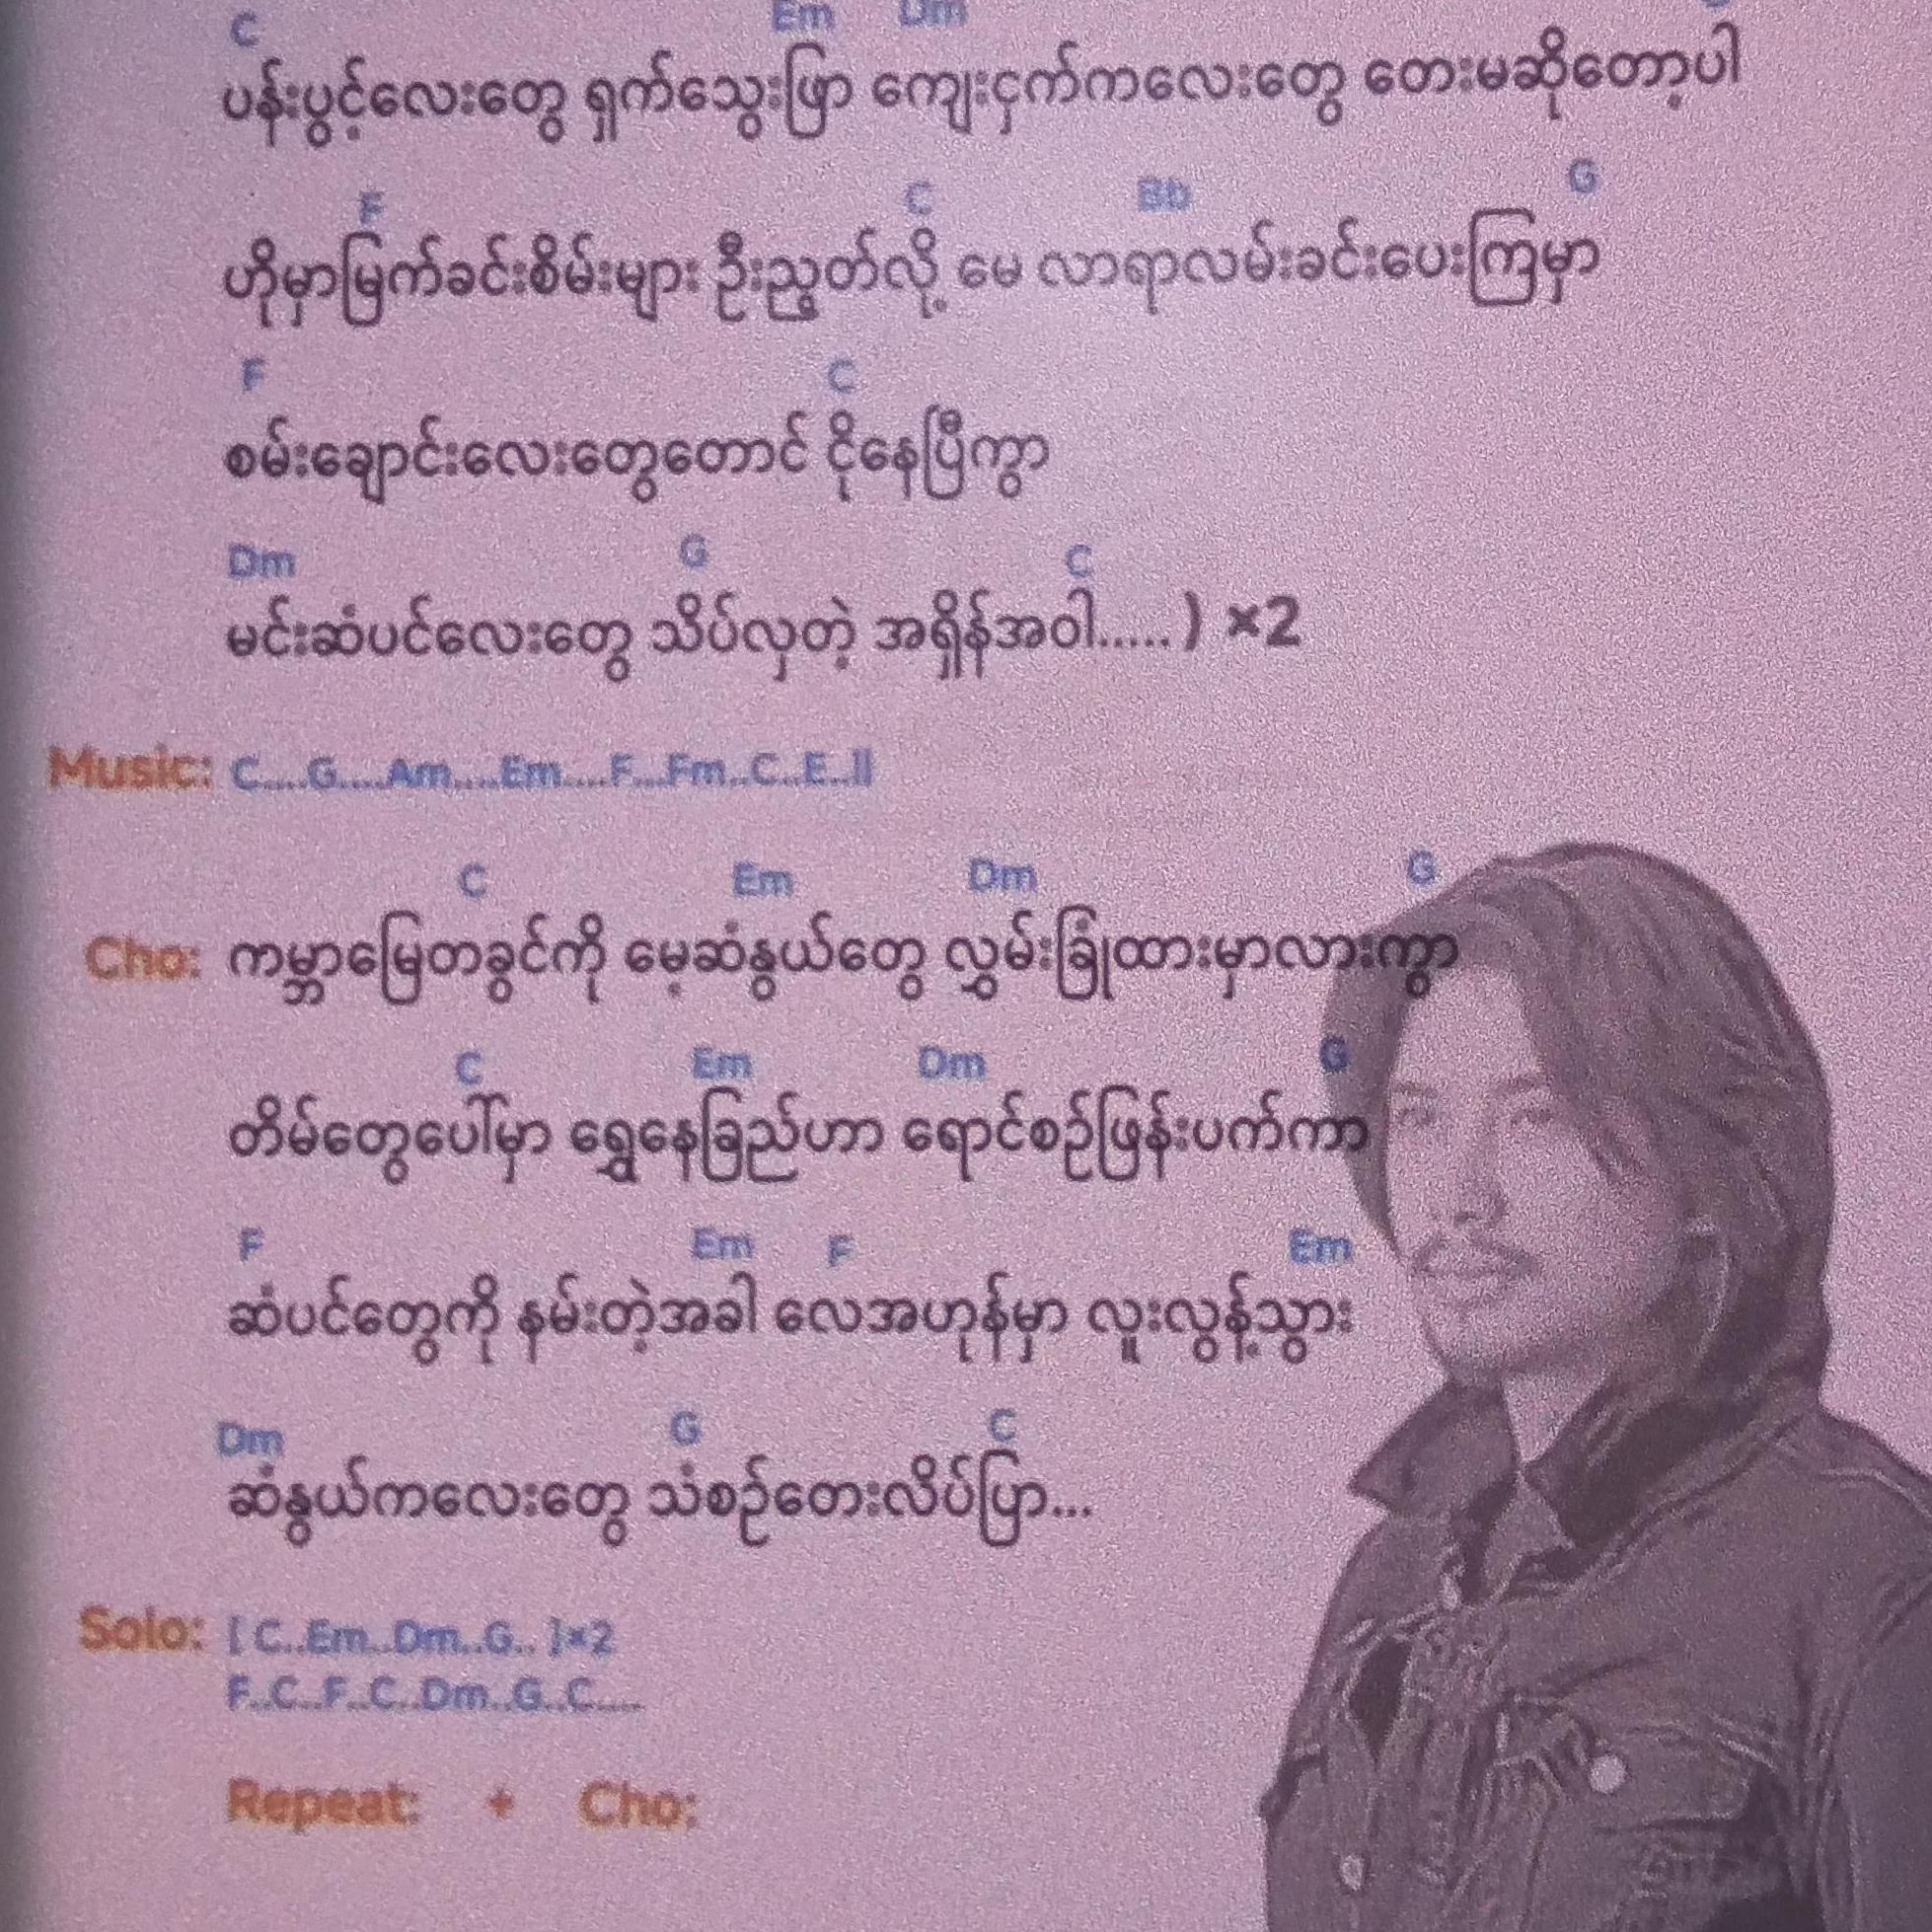 C Em Dm
ပန်းပွင့်လေးတွေ ရှက်သွေးဖြာ ကျေးငှက်ကလေးတွေ တေးမဆိုတော့ပါ
F C Bb G
ဟိုမှာမြက်ခင်းစိမ်းများ ဦးညွတ်လို့ မေ လာရာလမ်းခင်းပေးကြမှာ
F C
စမ်းချောင်းလေးတွေတောင် ငိုနေပြီကွာ
Dm G C
မင်းဆံပင်လေးတွေ သိပ်လှတဲ့ အရှိန်အဝါ......) ×2
Music: C....G....Am....Em....F...Fm..C..E..||
C Em Dm G
Cho: ကမ္ဘာမြေတခွင်ကို မေ့ဆံနွယ်တွေ လွှမ်းခြုံထားမှာလားကွာ
C Em Dm G
တိမ်တွေပေါ်မှာ ရွှေနေခြည်ဟာ ရောင်စဉ်ဖြန်းပက်ကာ
F Em F Em
ဆံပင်တွေကို နမ်းတဲ့အခါ လေအဟုန်မှာ လူးလွန့်သွား
Dm G C
ဆံနွယ်ကလေးတွေ သံစဉ်တေးလိပ်ပြာ...
Solo: [ C..Em..Dm..G.. ]×2
F..C..F..C..Dm..G..C.....
Repeat: + Cho: